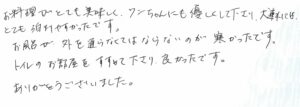 お料理がとても美味しく、ワンちゃんにも優しくして下さり、大変に
とても泊りやすかったです。
お風呂が外を通らなくてはならないのが寒かったです。
トイレのお部屋をすすめて下さり、良かったです。
ありがとうございました。